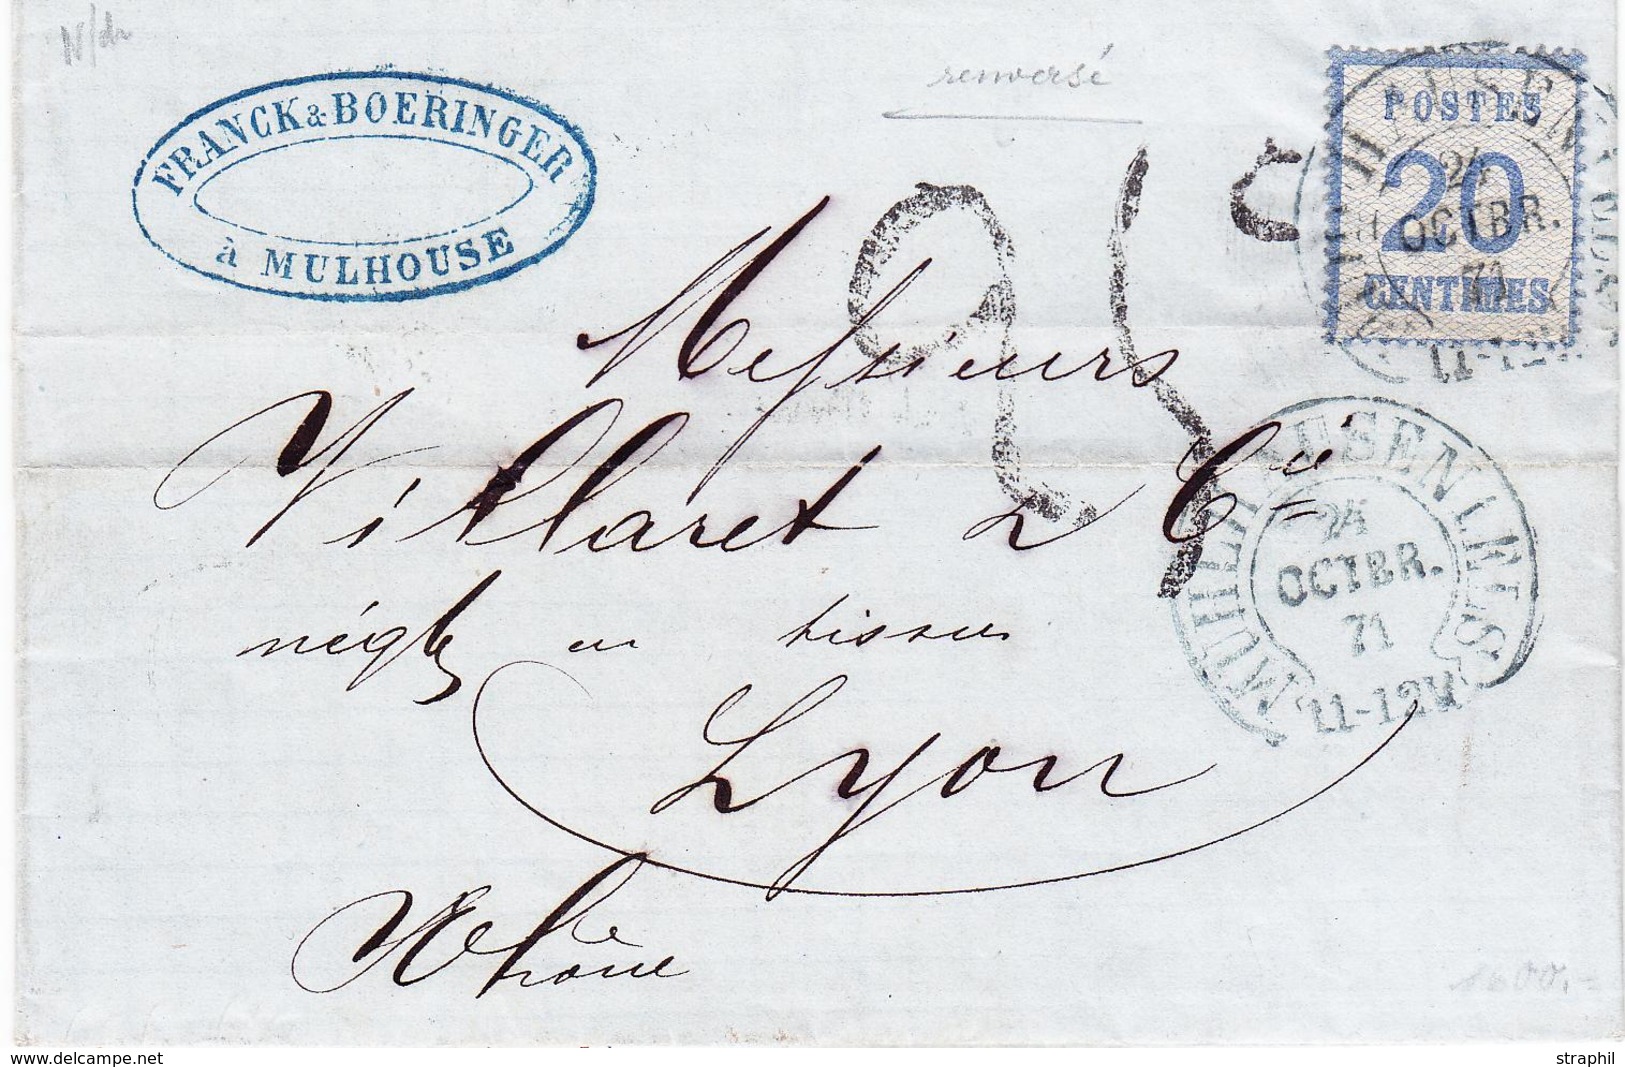 N/dr
renversé
FRANCK & BOERINGER
à MULHOUSE
POSTES
20
CENTIMES
24
OCTBR.
71
25
Messieurs
Villaret & Cie
négts en tissus
Lyon
Rhône
MÜHLHAUSEN I. ELS
24
OCTBR.
71
11-12V
1000.-
www.delcampe.net
straphil